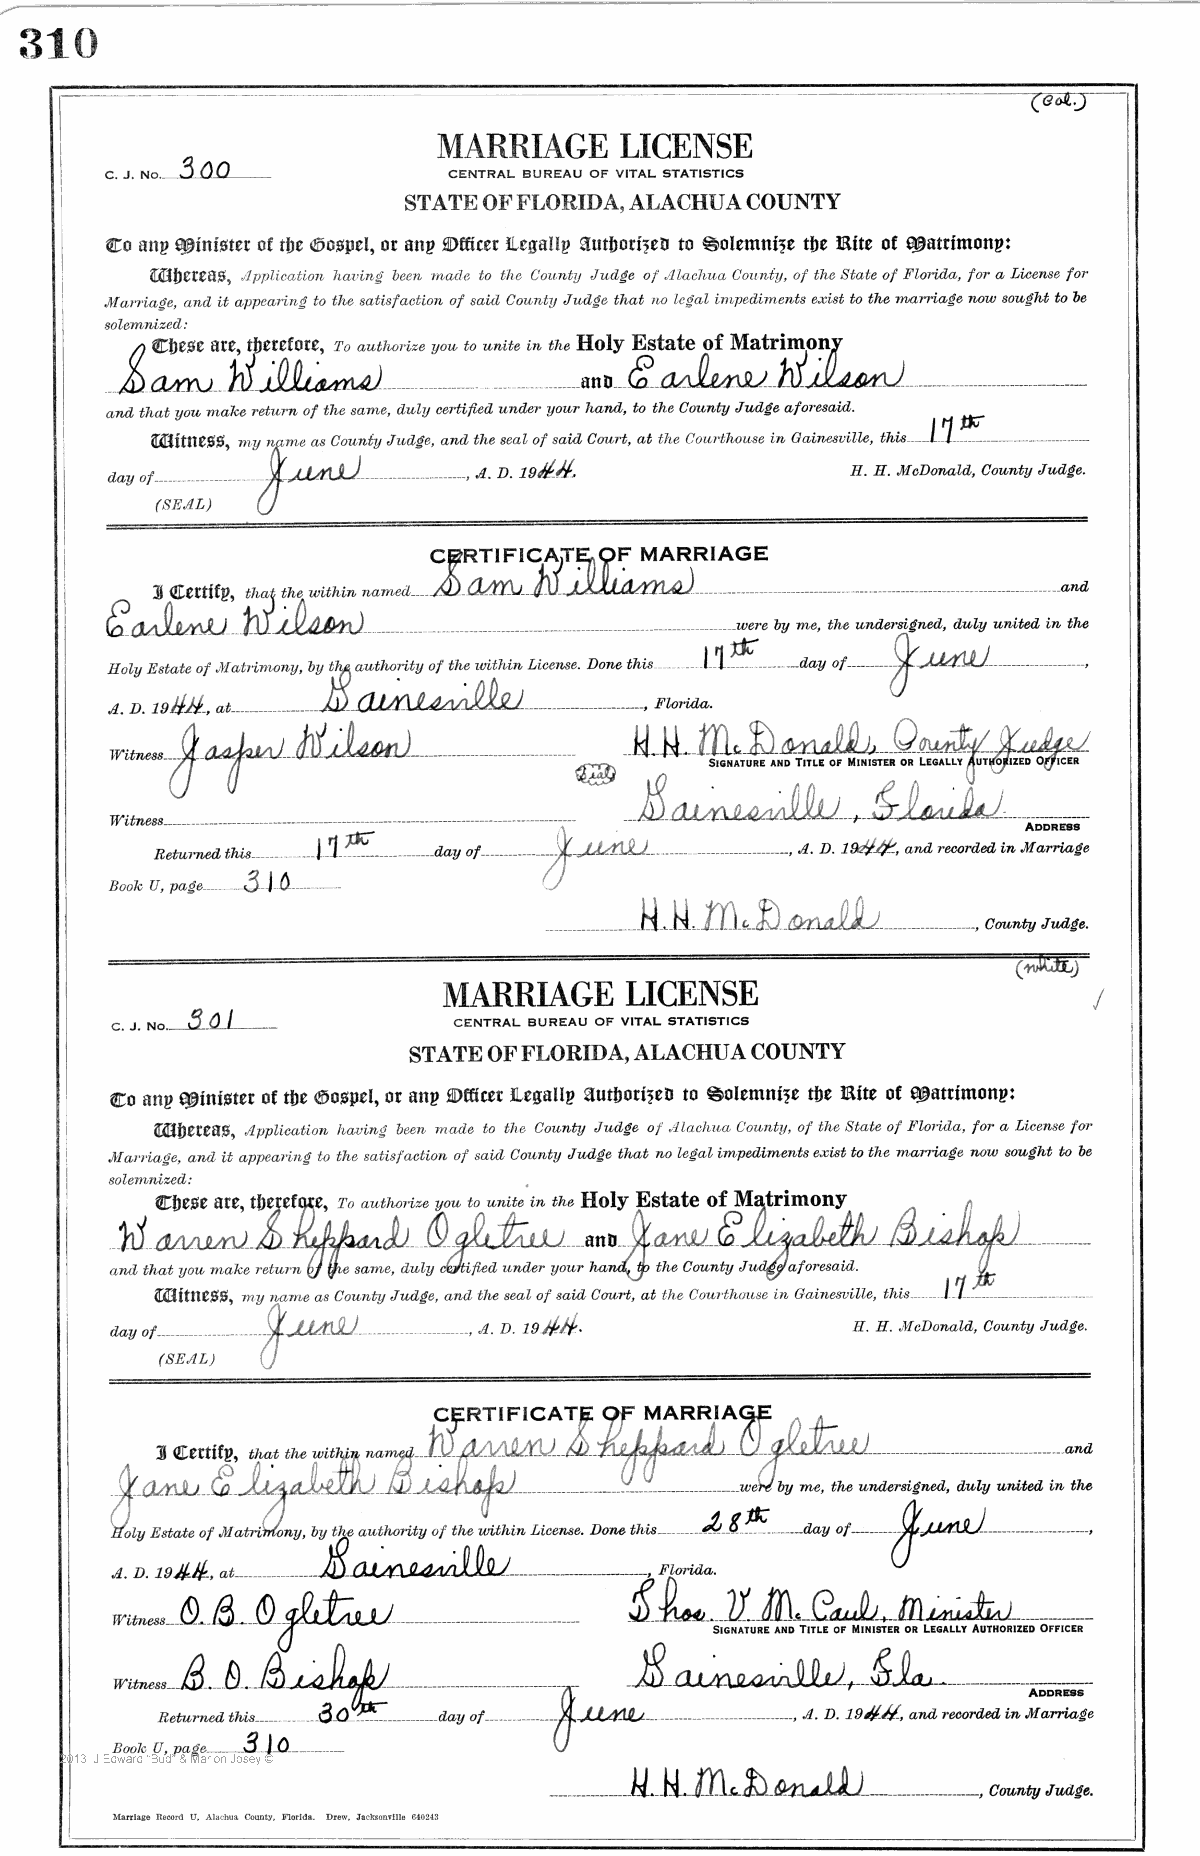 310
(Col.)
MARRIAGE LICENSE
C. J. No. 300
CENTRAL BUREAU OF VITAL STATISTICS
STATE OF FLORIDA, ALACHUA COUNTY
To any Minister of the Gospel, or any Officer Legally Authorized to Solemnize the Rite of Matrimony:
Whereas, Application having been made to the County Judge of Alachua County, of the State of Florida, for a License for
Marriage, and it appearing to the satisfaction of said County Judge that no legal impediments exist to the marriage now sought to be
solemnized:
These are, therefore, To authorize you to unite in the Holy Estate of Matrimony
Sam Williams and Earlene Wilson
and that you make return of the same, duly certified under your hand, to the County Judge aforesaid.
Witness, my name as County Judge, and the seal of said Court, at the Courthouse in Gainesville, this 17th
day of June, A. D. 1944. H. H. McDonald, County Judge.
(SEAL)
CERTIFICATE OF MARRIAGE
I Certify, that the within named Sam Williams and
Earlene Wilson were by me, the undersigned, duly united in the
Holy Estate of Matrimony, by the authority of the within License. Done this 17th day of June,
A. D. 1944, at Gainesville, Florida.
Witness Jasper Wilson H. H. McDonald, County Judge
SIGNATURE AND TITLE OF MINISTER OR LEGALLY AUTHORIZED OFFICER
Seal
Gainesville, Florida
Witness
ADDRESS
Returned this 17th day of June, A. D. 1944, and recorded in Marriage
Book U, page 310
H. H. McDonald, County Judge.
(white)
MARRIAGE LICENSE
C. J. No. 301
CENTRAL BUREAU OF VITAL STATISTICS
STATE OF FLORIDA, ALACHUA COUNTY
To any Minister of the Gospel, or any Officer Legally Authorized to Solemnize the Rite of Matrimony:
Whereas, Application having been made to the County Judge of Alachua County, of the State of Florida, for a License for
Marriage, and it appearing to the satisfaction of said County Judge that no legal impediments exist to the marriage now sought to be
solemnized:
These are, therefore, To authorize you to unite in the Holy Estate of Matrimony
Warren Sheppard Ogletree and Jane Elizabeth Bishop
and that you make return of the same, duly certified under your hand, to the County Judge aforesaid.
Witness, my name as County Judge, and the seal of said Court, at the Courthouse in Gainesville, this 17th
day of June, A. D. 1944. H. H. McDonald, County Judge.
(SEAL)
CERTIFICATE OF MARRIAGE
I Certify, that the within named Warren Sheppard Ogletree and
Jane Elizabeth Bishop were by me, the undersigned, duly united in the
Holy Estate of Matrimony, by the authority of the within License. Done this 28th day of June,
A. D. 1944, at Gainesville, Florida.
Witness O. B. Ogletree Thos. V. McCaul, Minister
SIGNATURE AND TITLE OF MINISTER OR LEGALLY AUTHORIZED OFFICER
Witness B. O. Bishop Gainesville, Fla.
ADDRESS
Returned this 30th day of June, A. D. 1944, and recorded in Marriage
Book U, page 310
2013 J Edward "Bud" & Marion Josey ©
H. H. McDonald, County Judge.
Marriage Record U, Alachua County, Florida. Drew, Jacksonville 640243